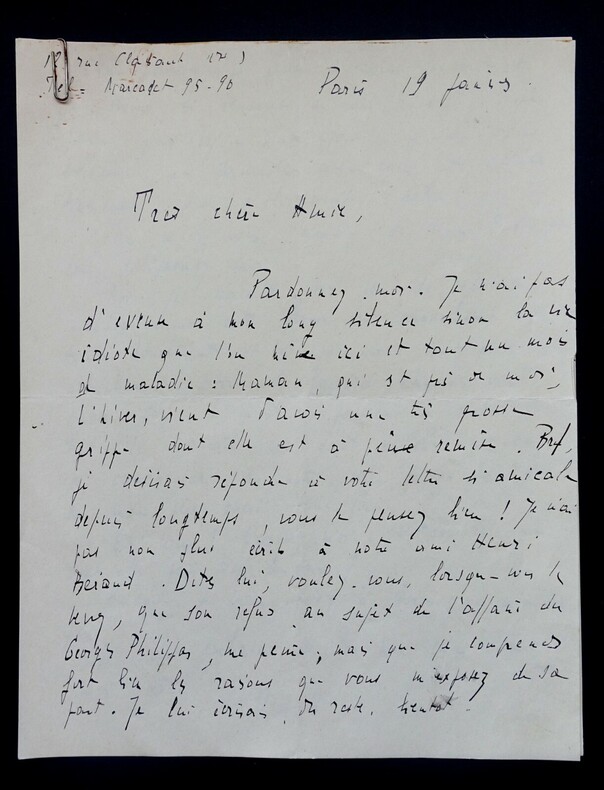 rue
Tel. Marcadet 95-90
Paris 19
Très chère Amie,
Pardonnez-moi. Je n'ai pas
d' à mon long silence sinon la vie
idiote que l'on mène ici et tout un mois
de maladie : Maman, qui est près de moi,
l'hiver, vient d'avoir une très grosse
grippe dont elle est à peine remise. Bref,
je désirais répondre à votre lettre si amicale
depuis longtemps, vous le pensez bien ! Je n'ai
pas non plus écrit à notre ami Henri
Béraud. Dites lui, voulez-vous, lorsque vous le
verrez, que son refus au sujet de l'affaire du
Georges Philippar, me peine ; mais que je comprends
fort bien les raisons que vous m'exposez de sa
part. Je lui écrirai, du reste, bientôt.